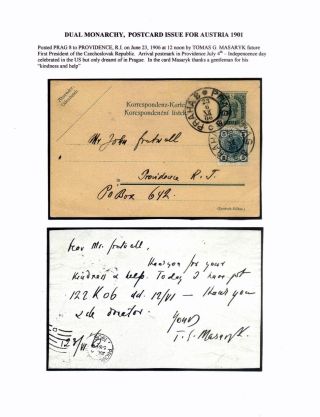 DUAL MONARCHY, POSTCARD ISSUE FOR AUSTRIA 1901
Posted PRAG 8 to PROVIDENCE, R.I. on June 23, 1906 at 12 noon by TOMAS G. MASARYK future
First President of the Czechoslovak Republic. Arrival postmark in Providence July 4th – Independence day
celebrated in the US but only dreamt of in Prague. In the card Masaryk thanks a gentleman for his
"kindness and help"
Korrespondenz-Karte
Korespondenční lístek
PRAHA 8
Mr John
Providence R. I.
PO Box 642
Dear Mr.
Thank you for your
kindness & help. Today I have got
122 Kob dd. 12/VI – thank you
& the donator.
Yours
T. G. Masaryk